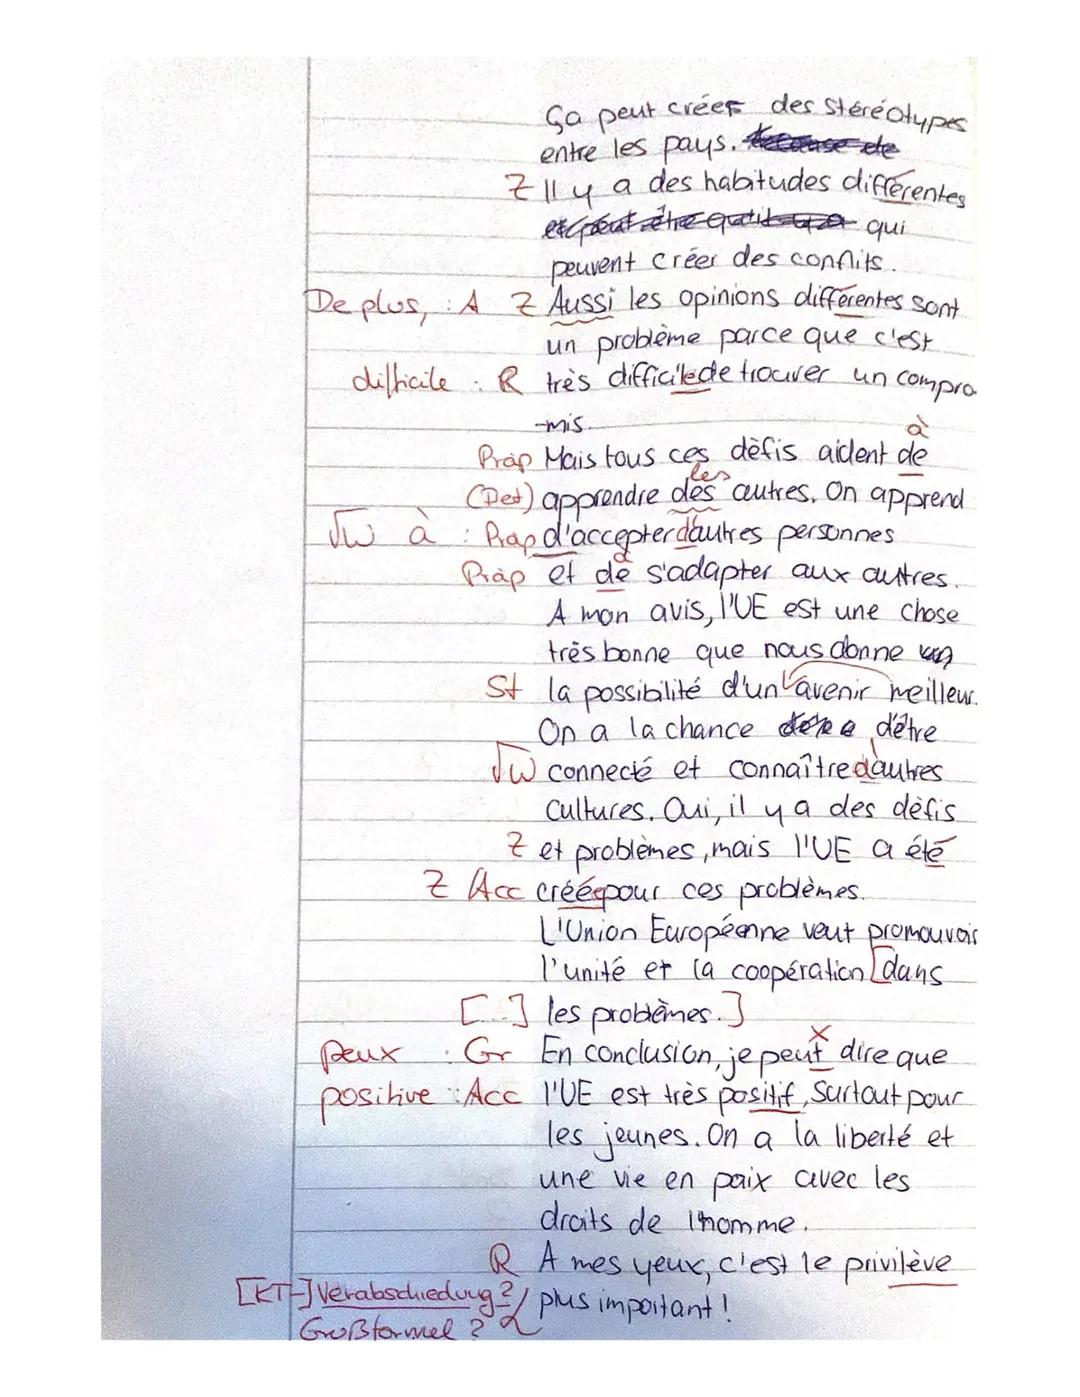 Ça peut créer des stéréotypes
entre les pays.
Z Il y a des habitudes différentes
qui
peuvent créer des conflits.
De plus, : A Z Aussi les opinions différentes sont
un problème parce que c'est
difficile : R très difficilede trouver un compro
-mis.
à
Präp Mais tous ces dèfis aident de
les
(Det) apprendre des autres. On apprend
√W à : Präp d'accepter d'autres personnes
à
Präp et de s'adapter aux autres.
A mon avis, l'UE est une chose
très bonne que nous donne
St la possibilité d'un avenir meilleur.
On a la chance d'être
√W connecté et connaître d'autres
cultures. Oui, il y a des dèfis
Z et problèmes, mais l'UE a été
Z Acc créée pour ces problèmes.
L'Union Européenne veut promouvoir
l'unité et la coopération [dans
[...] les problèmes.]
x
peux : Gr En conclusion, je peut dire que
positive : Acc l'UE est très positif, surtout pour
les jeunes. On a la liberté et
une vie en paix avec les
droits de lhomme.
R A mes yeux, c'est le privilève
[KT-] Verabschiedung? plus important!
Grußformel?